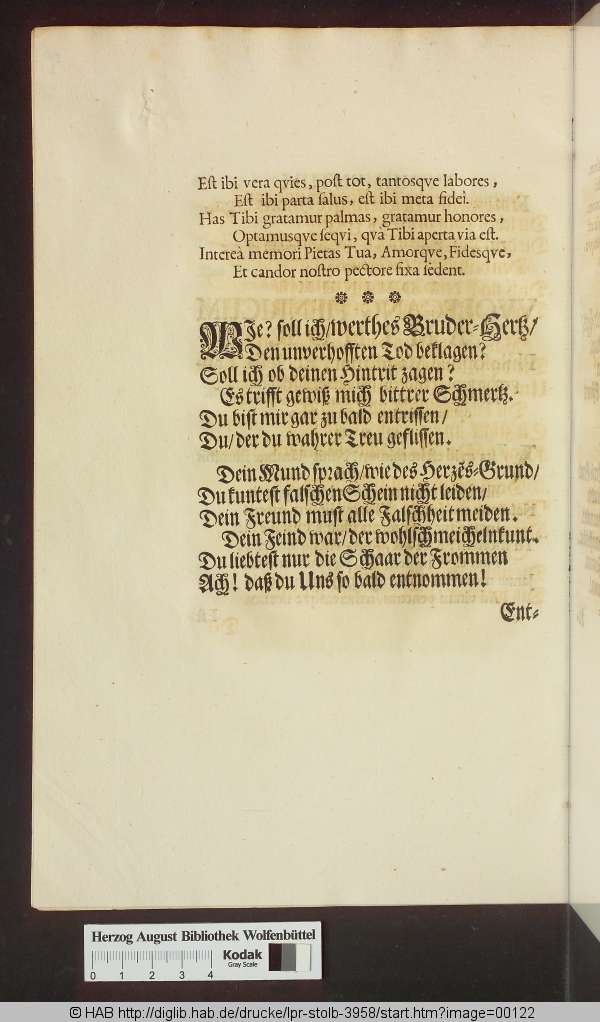 Est ibi vera qvies, post tot, tantosqve labores,
Est ibi parta salus, est ibi meta fidei.
Has Tibi gratamur palmas, gratamur honores,
Optamusqve seqvi, qvà Tibi aperta via est.
Intereà memori Pietas Tua, Amorqve, Fidesqve,
Et candor nostro pectore fixa sedent.
WJe? soll ich/werthes Bruder-Hertz/
Den unverhofften Tod beklagen?
Soll ich ob deinen Hintrit zagen?
Es trifft gewiß mich bittrer Schmertz.
Du bist mir gar zu bald entrissen/
Du/der du wahrer Treu geflissen.
Dein Mund sprach/wie des Herzẽs-Grund/
Du kuntest falschen Schein nicht leiden/
Dein Freund must alle Falschheit meiden.
Dein Feind war/der wohlschmeicheln kunt.
Du liebtest nur die Schaar der Frommen
Ach! daß du Uns so bald entnommen!
Ent-
Herzog August Bibliothek Wolfenbüttel
Kodak
Gray Scale
0 1 2 3 4
© HAB http://diglib.hab.de/drucke/lpr-stolb-3958/start.htm?image=00122